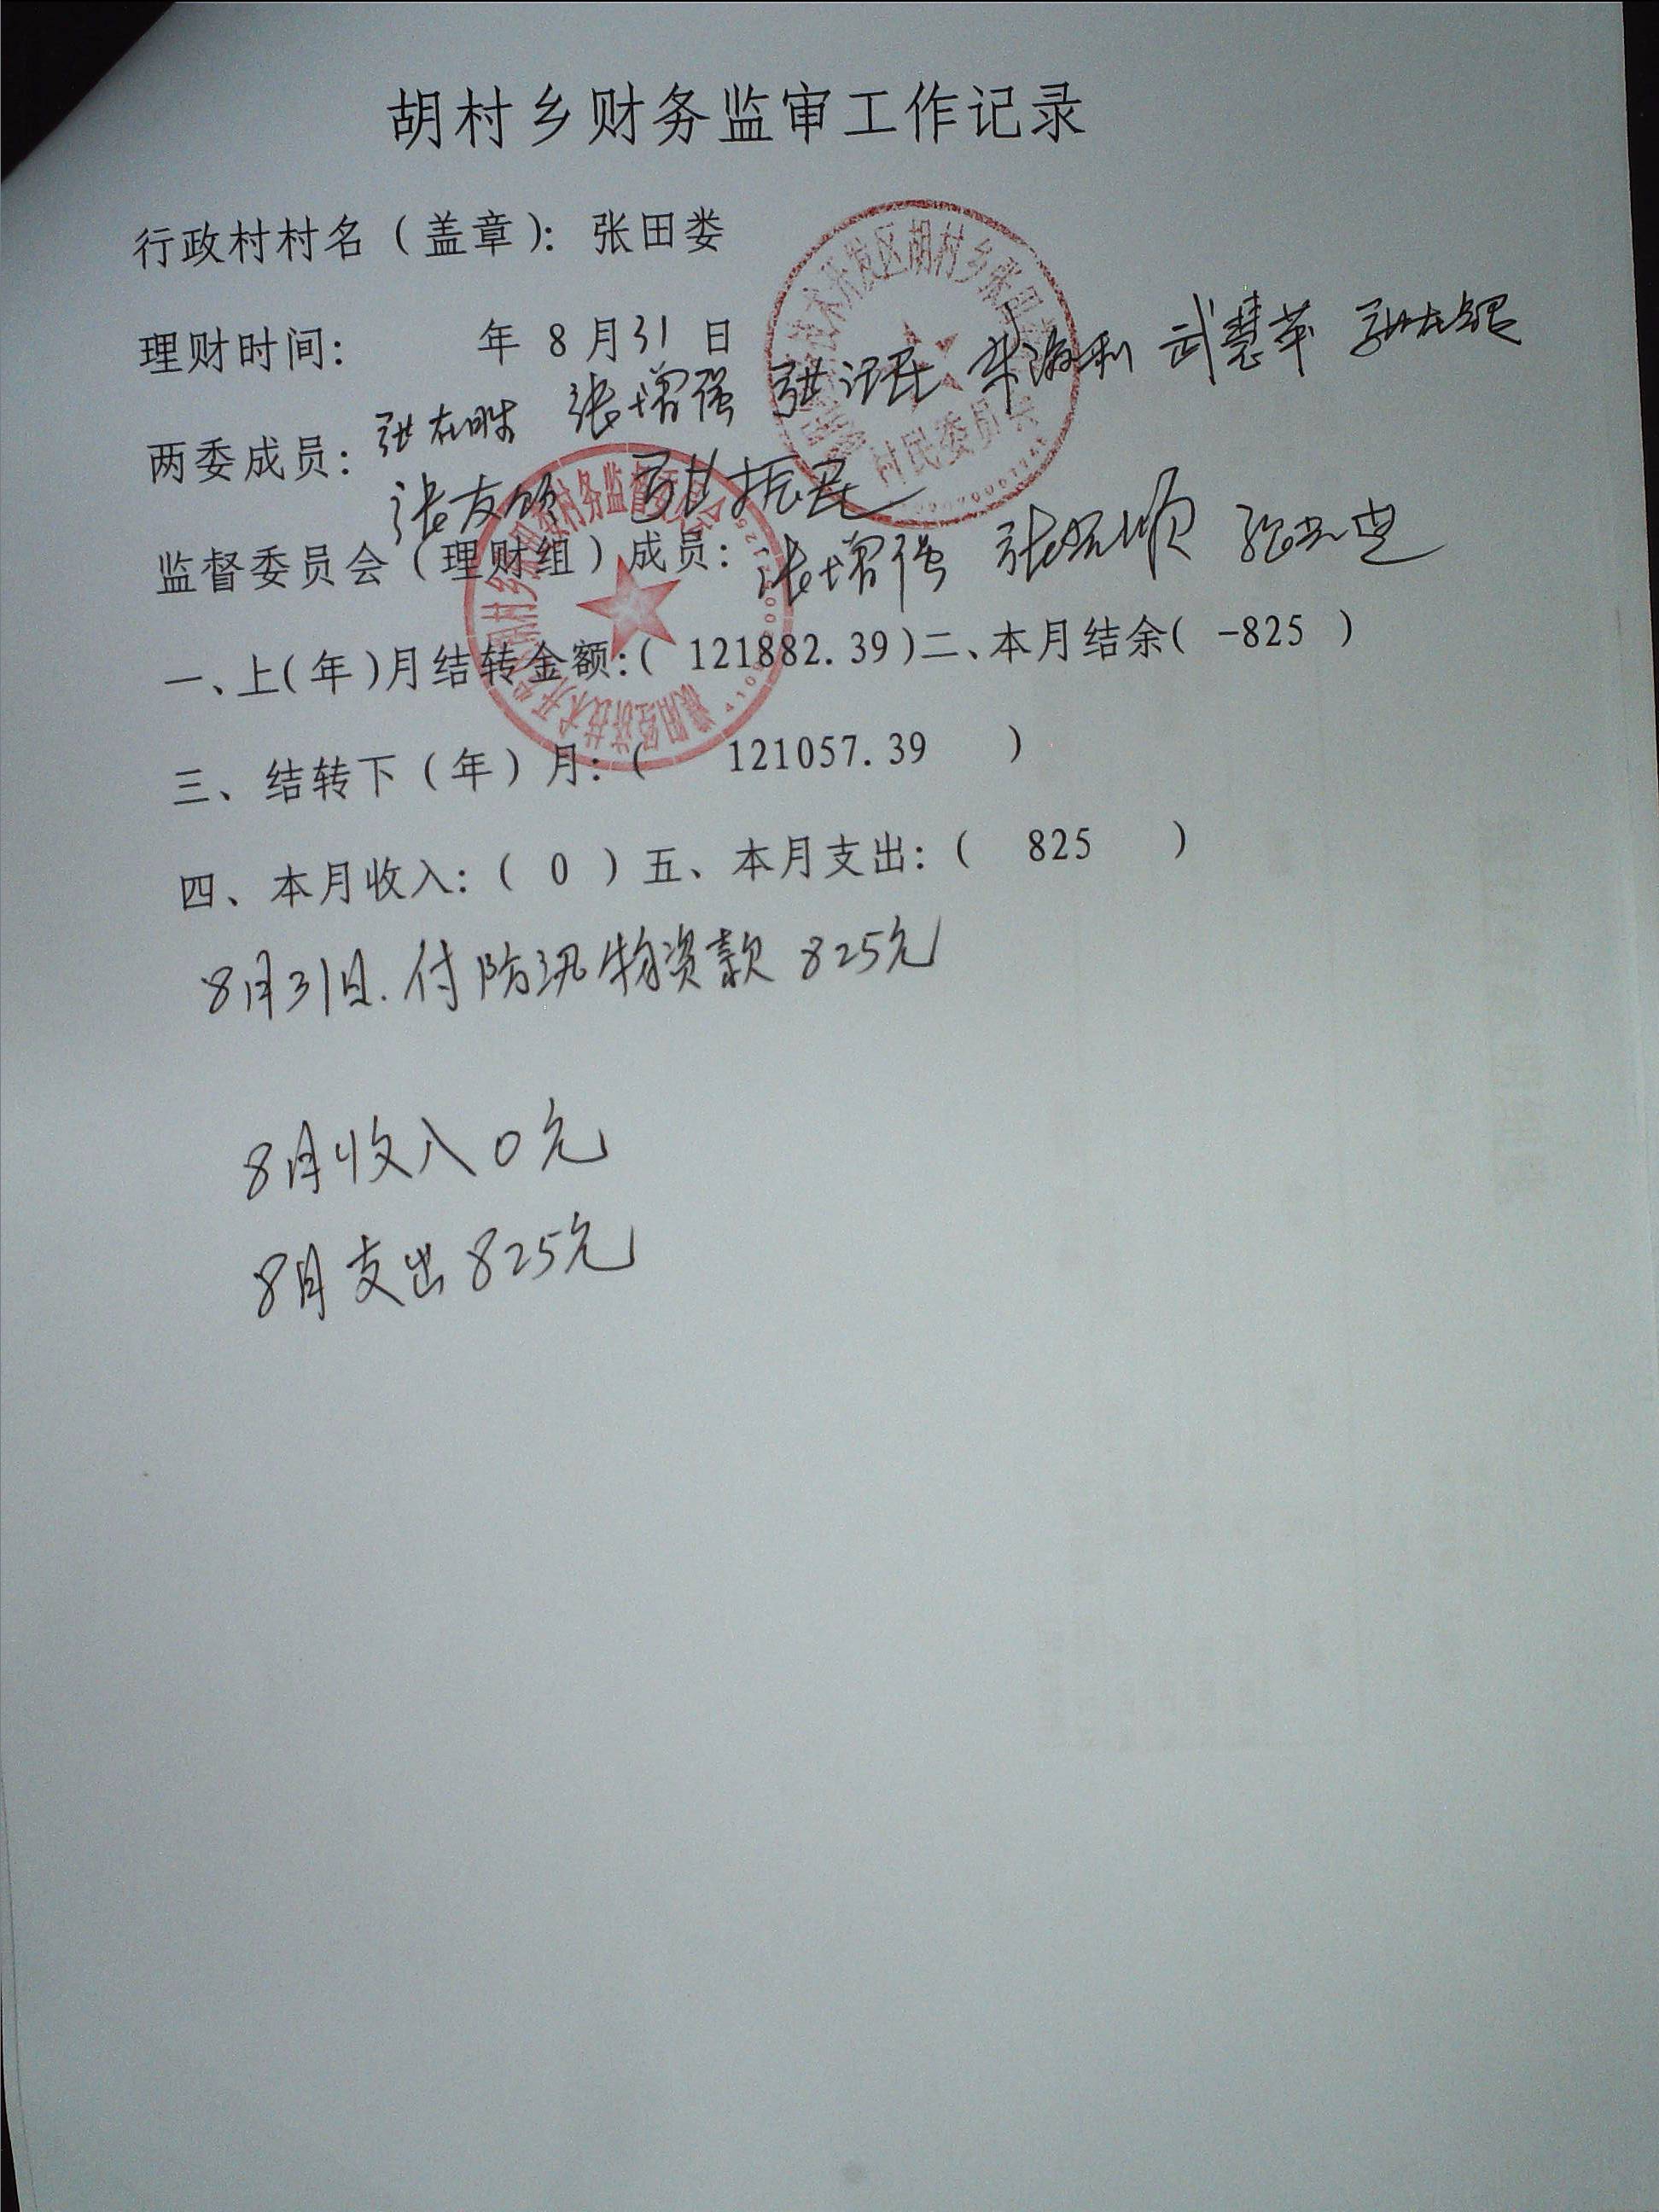 胡村乡财务监审工作记录
行政村村名（盖章）：张田娄
理财时间：　　年 8 月31 日
两委成员：张在胜 张增强 张 武慧苹
张友 张振民
监督委员会（理财组）成员：张增强 张 顺
一、上(年)月结转金额：( 121882.39)二、本月结余( -825 )
三、结转下（年）月：(　121057.39　)
四、本月收入：( 0 ) 五、本月支出：( 825 )
8月31日.付防汛物资款825元
8月收入0元
8月支出825元
技术开发区胡村乡张田
村民委员会
村务监督委员会